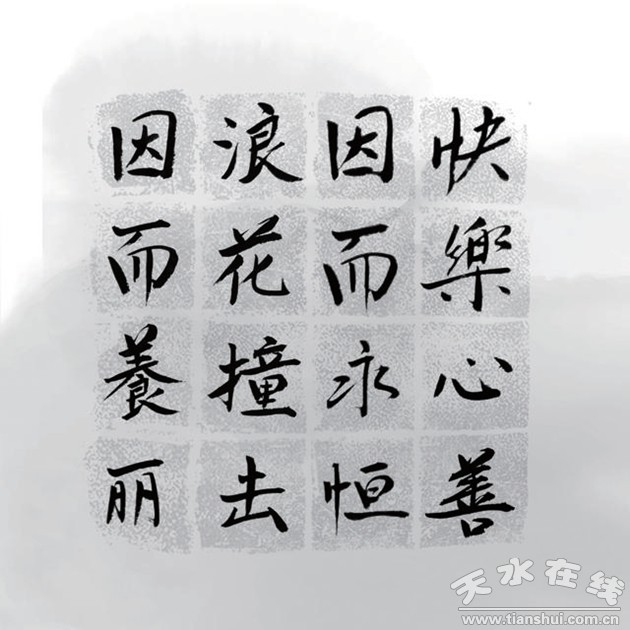 快樂心善
因而永恒
浪花撞击
因而養丽
天水在线
www.tianshui.com.cn